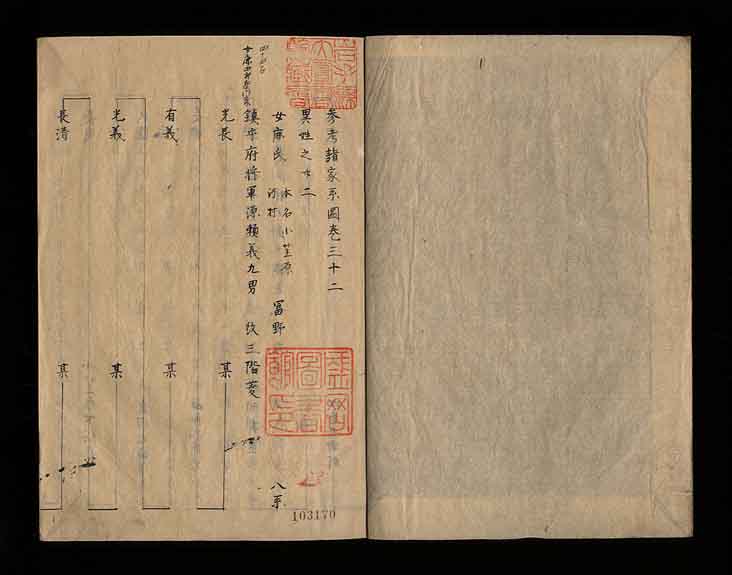 参考諸家系図巻三十二
異姓之廿二
女鹿氏 本名小笠原 河村 冨野 八系
鎮守府将軍源頼義九男 紋三階菱
光長 某
有義 某
光義 某
長清 某
103170